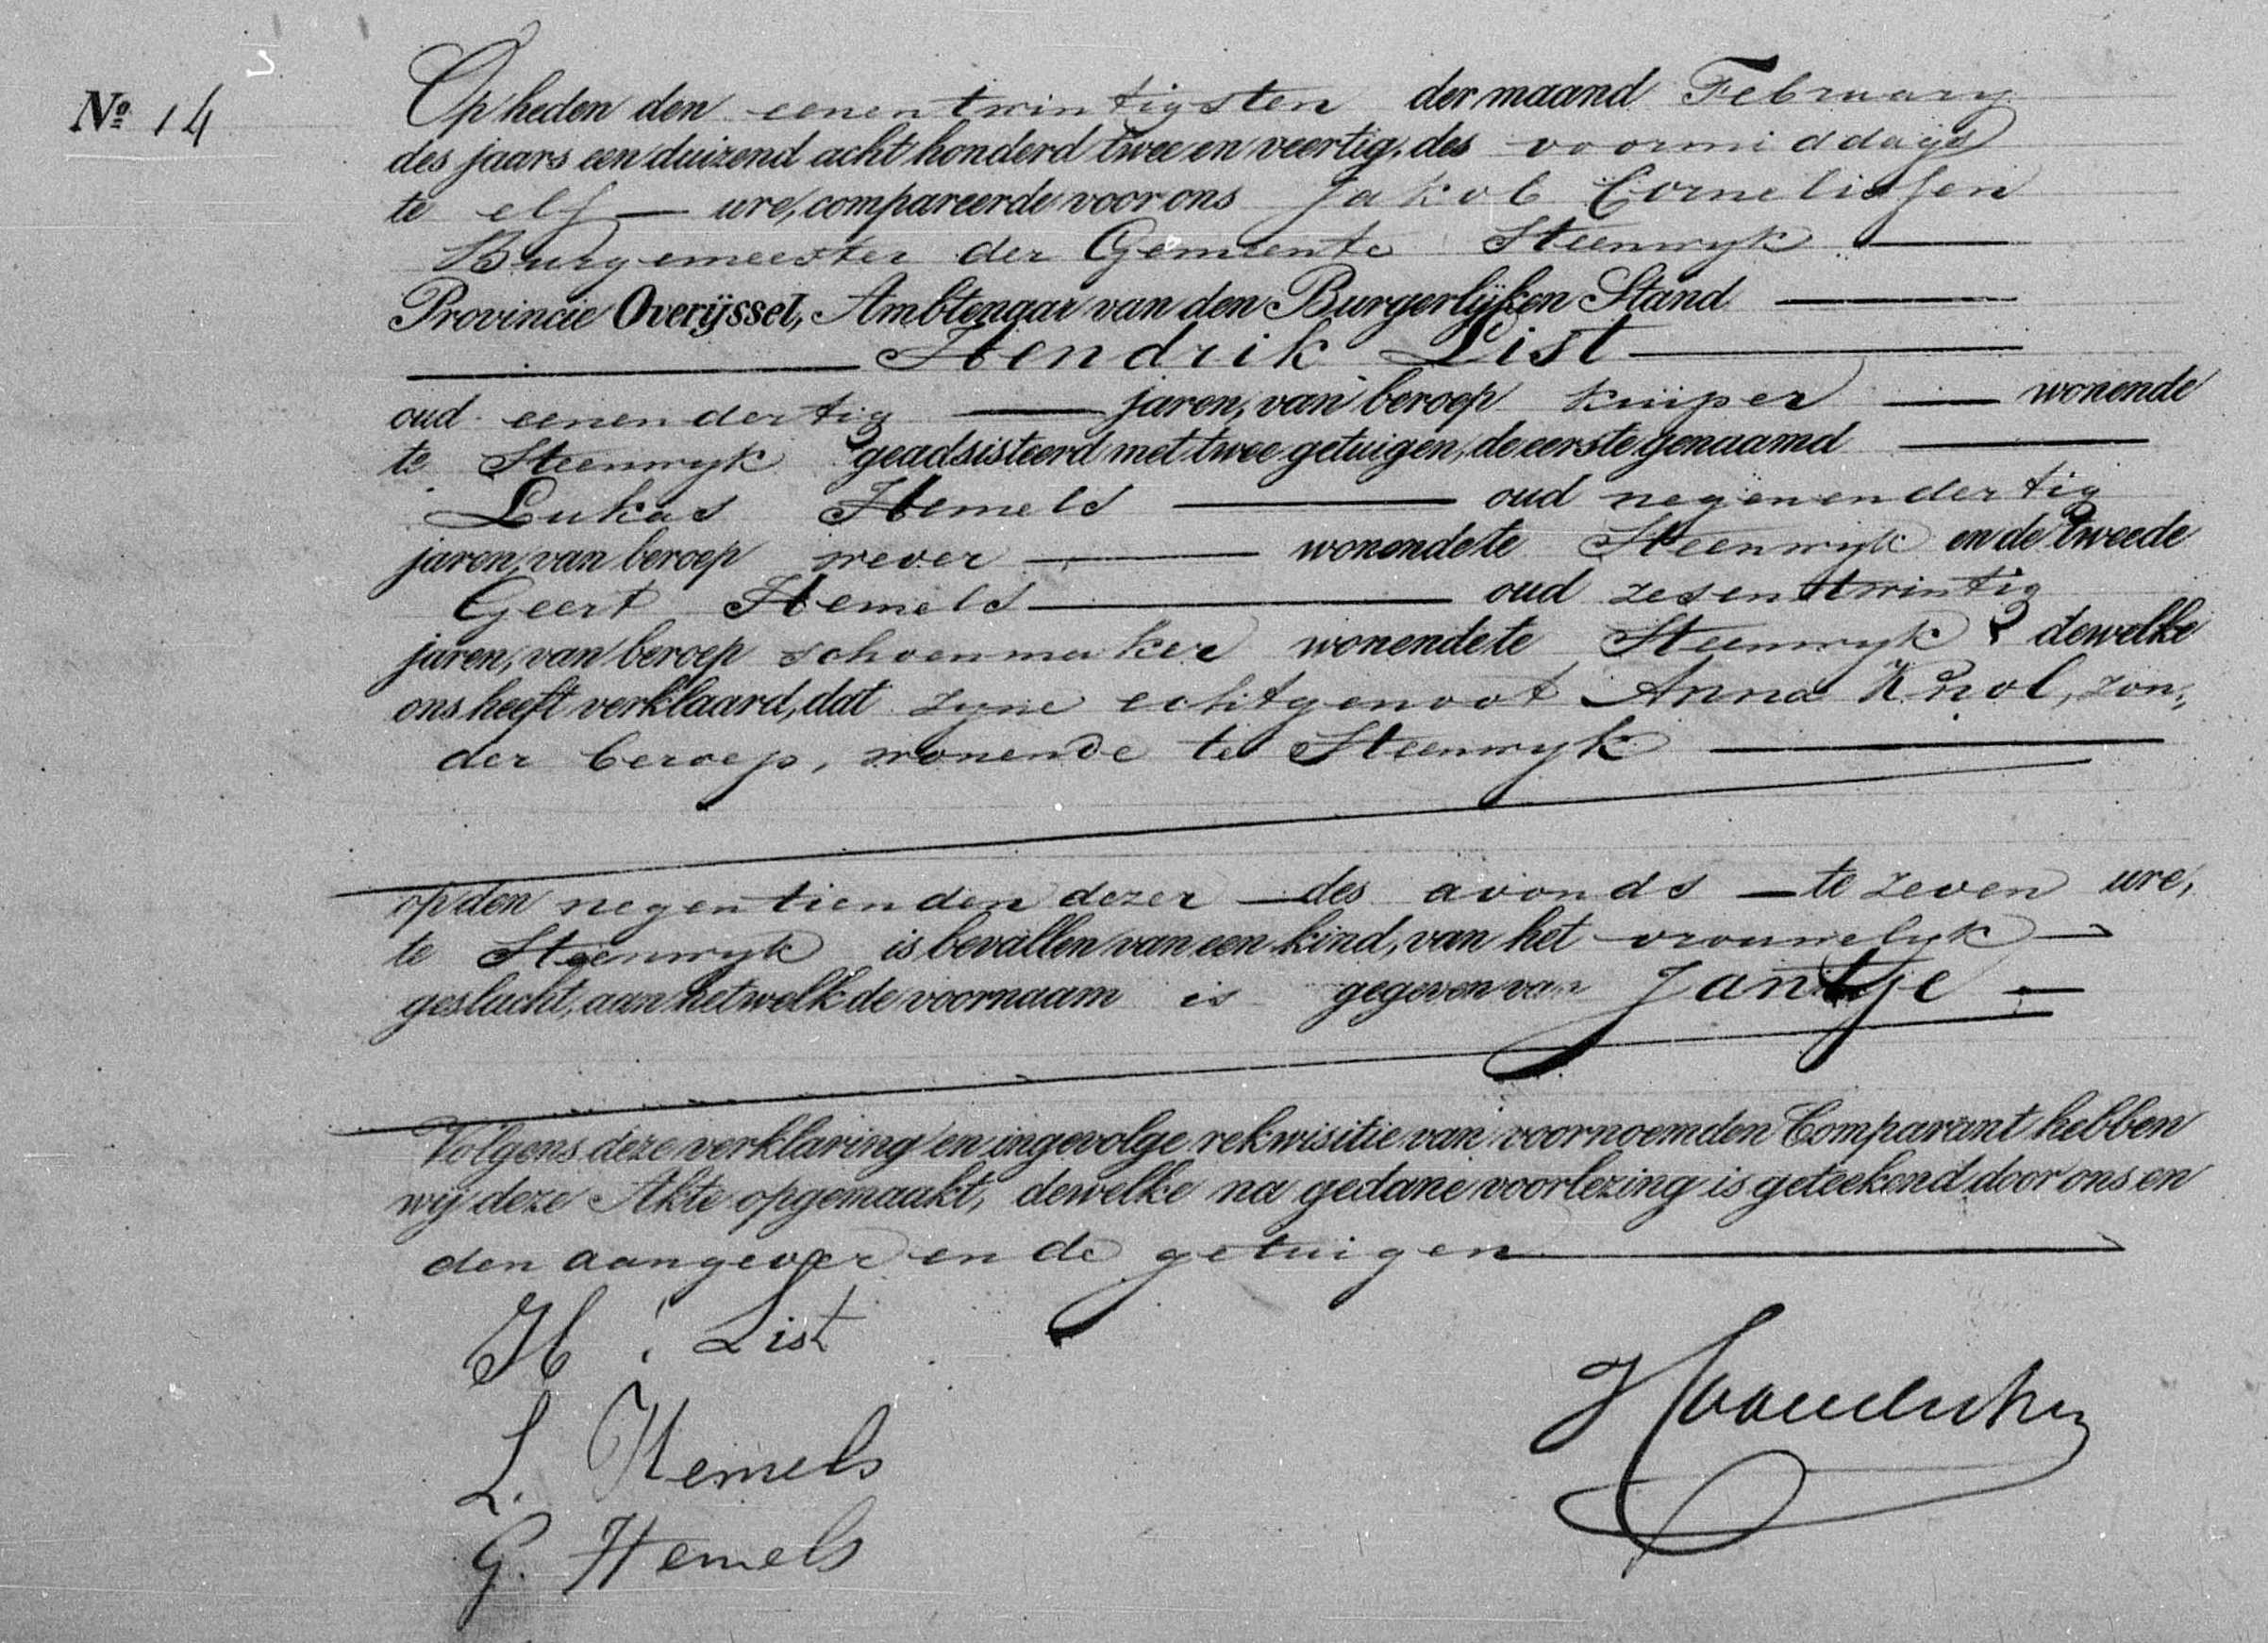 No. 14
Op heden den eenentwintigsten der maand February
des jaars een duizend acht honderd twee en veertig, des voormiddags
te elf ure, compareerde voor ons Jakob Cornelissen
Burgemeester der Gemeente Steenwyk
Provincie Overijssel, Ambtenaar van den Burgerlijken Stand
Hendrik List
oud eenendertig jaren, van beroep kuiper wonende
te Steenwyk geadsisteerd met twee getuigen, de eerste genaamd
Lukas Hemels oud negenendertig
jaren, van beroep wever wonende te Steenwyk en de tweede
Geert Hemels oud zesentwintig
jaren, van beroep schoenmaker wonende te Steenwyk dewelke
ons heeft verklaard, dat zyne echtgenoot Anna Knol, zon„
der beroep, wonende te Steenwyk
op den negentienden dezer des avonds te zeven ure,
te Steenwyk is bevallen van een kind, van het vrouwelyk
geslacht, aan hetwelk de voornaam is gegeven van Jantje
Volgens deze verklaring en ingevolge rekwisitie van voornoemden Comparant hebben
wij deze Akte opgemaakt, dewelke na gedane voorlezing is geteekend door ons en
den aangever en de getuigen
H : List
L. Hemels
G. Hemels